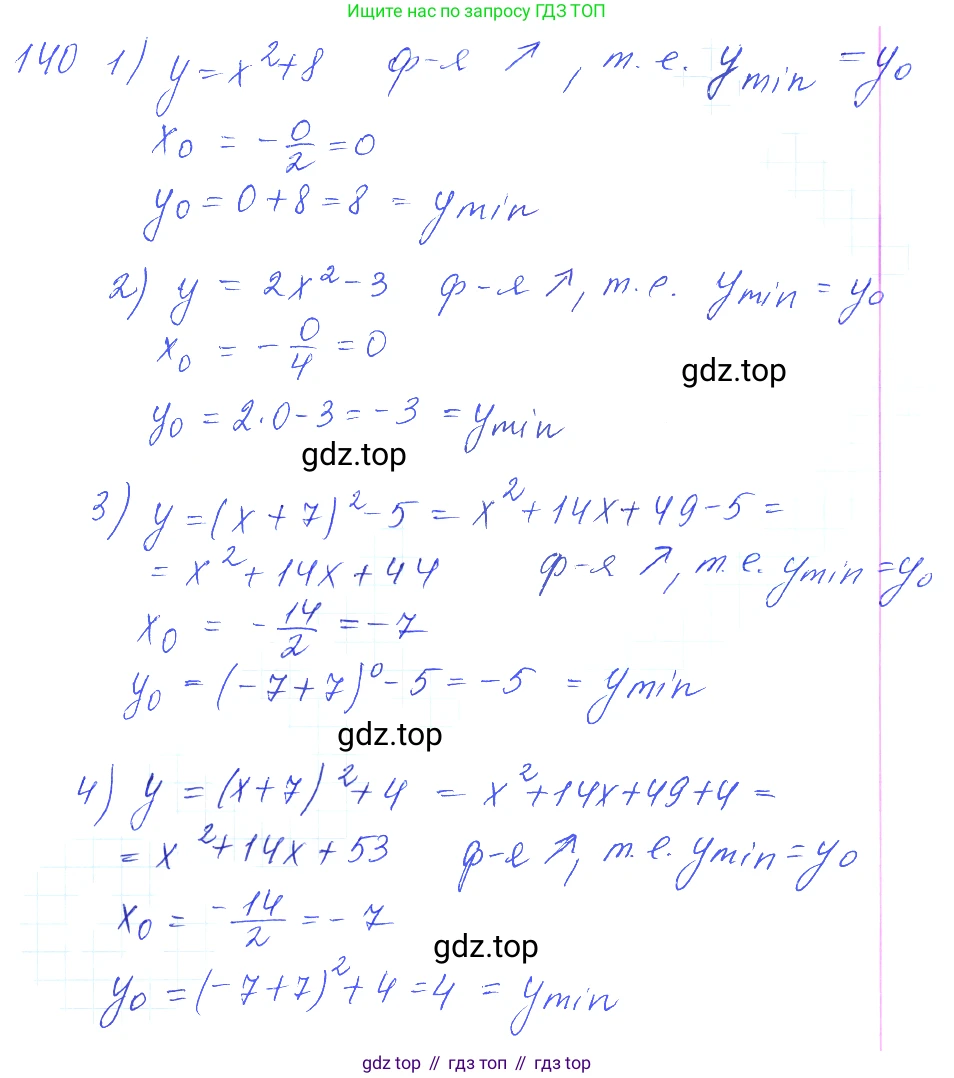 Ищите нас по запросу ГДЗ ТОП
140 1) y = x² + 8 ф-я ↗, т.е. y min = y₀
x₀ = -0/2 = 0
y₀ = 0 + 8 = 8 = y min
2) y = 2x² - 3 ф-я ↗, т.е. y min = y₀
x₀ = -0/4 = 0
gdz.top
y₀ = 2·0 - 3 = -3 = y min
gdz.top
3) y = (x + 7)² - 5 = x² + 14x + 49 - 5 =
= x² + 14x + 44 ф-я ↗, т.е. y min = y₀
x₀ = -14/2 = -7
y₀ = (-7 + 7)⁰ - 5 = -5 = y min
gdz.top
4) y = (x + 7)² + 4 = x² + 14x + 49 + 4 =
= x² + 14x + 53 ф-я ↗, т.е. y min = y₀
x₀ = -14/2 = -7
gdz.top
y₀ = (-7 + 7)² + 4 = 4 = y min
gdz top // гдз топ // gdz top